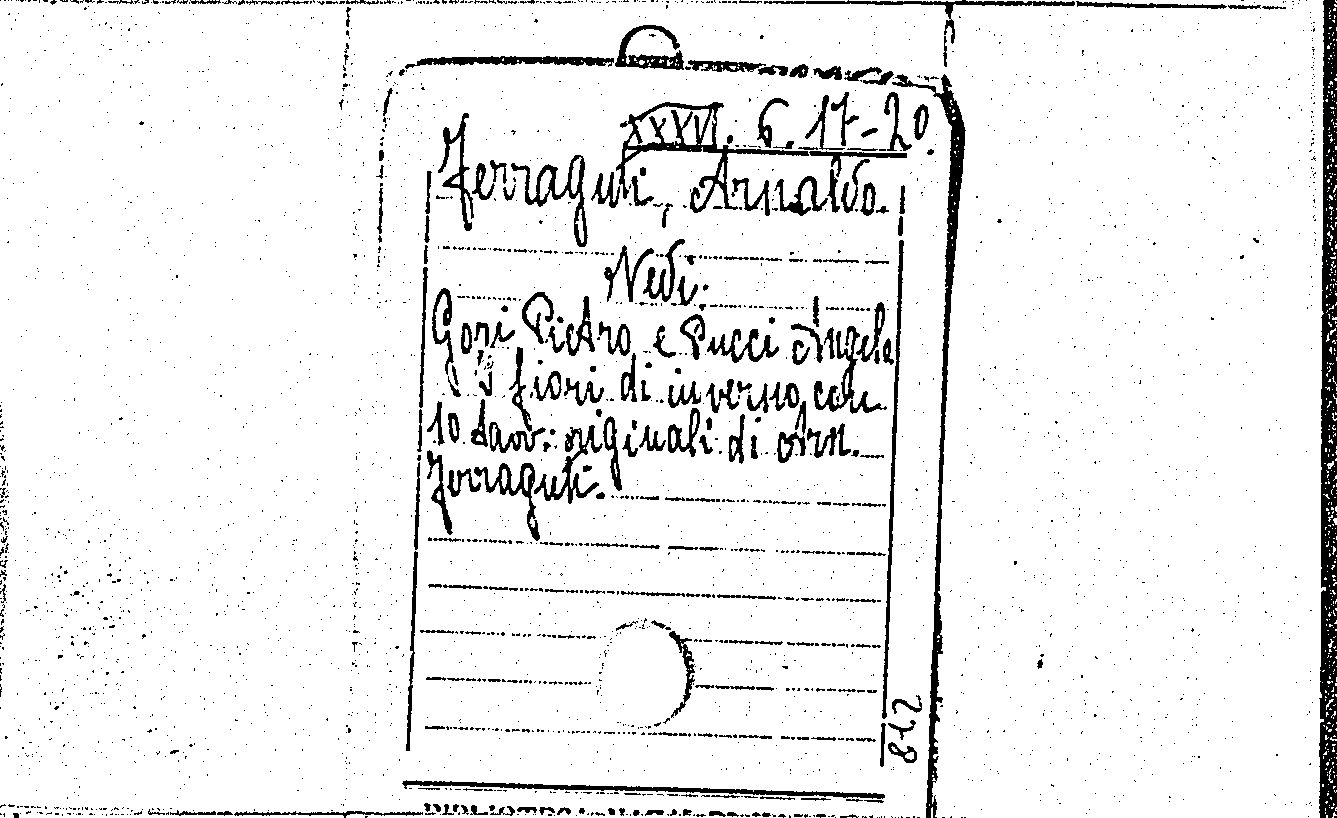 XXXVI. 6. 17-20.
Ferraguti, Arnaldo.
Vedi:
Gori Pietro e Pucci Angelo
I fiori di inverno con
10 tavv. originali di Arn.
Ferraguti.
812